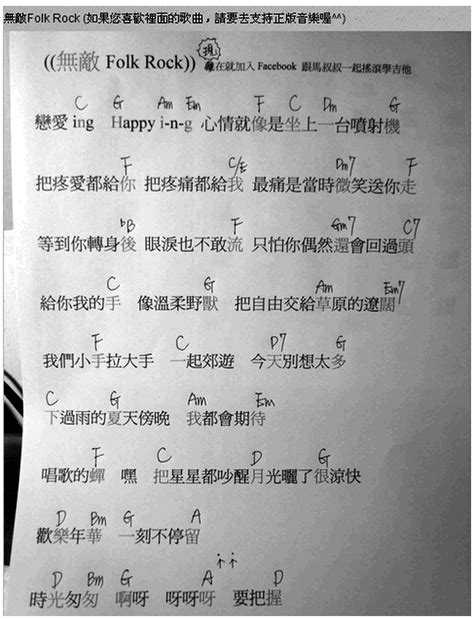 無敵Folk Rock (如果您喜歡裡面的歌曲，請要去支持正版音樂喔^^)
((無敵 Folk Rock)) 現在就加入 Facebook 跟馬叔叔一起搖滾學吉他
C G Am Em F C Dm G
戀愛 ing Happy i-n-g 心情就像是坐上一台噴射機
F C/E Dm7 F
把疼愛都給你 把疼痛都給我 最痛是當時微笑送你走
bB F Gm7 C7
等到你轉身後 眼淚也不敢流 只怕你偶然還會回過頭
C G Am Em7
給你我的手 像溫柔野獸 把自由交給草原的遼闊
F C D7 G
我們小手拉大手 一起郊遊 今天別想太多
C G Am Em
下過雨的夏天傍晚 我都會期待
F C D G
唱歌的蟬 嘿 把星星都吵醒月光曬了很涼快
D Bm G A
歡樂年華 一刻不停留
D Bm G A D
時光匆匆 啊呀 呀呀呀 要把握